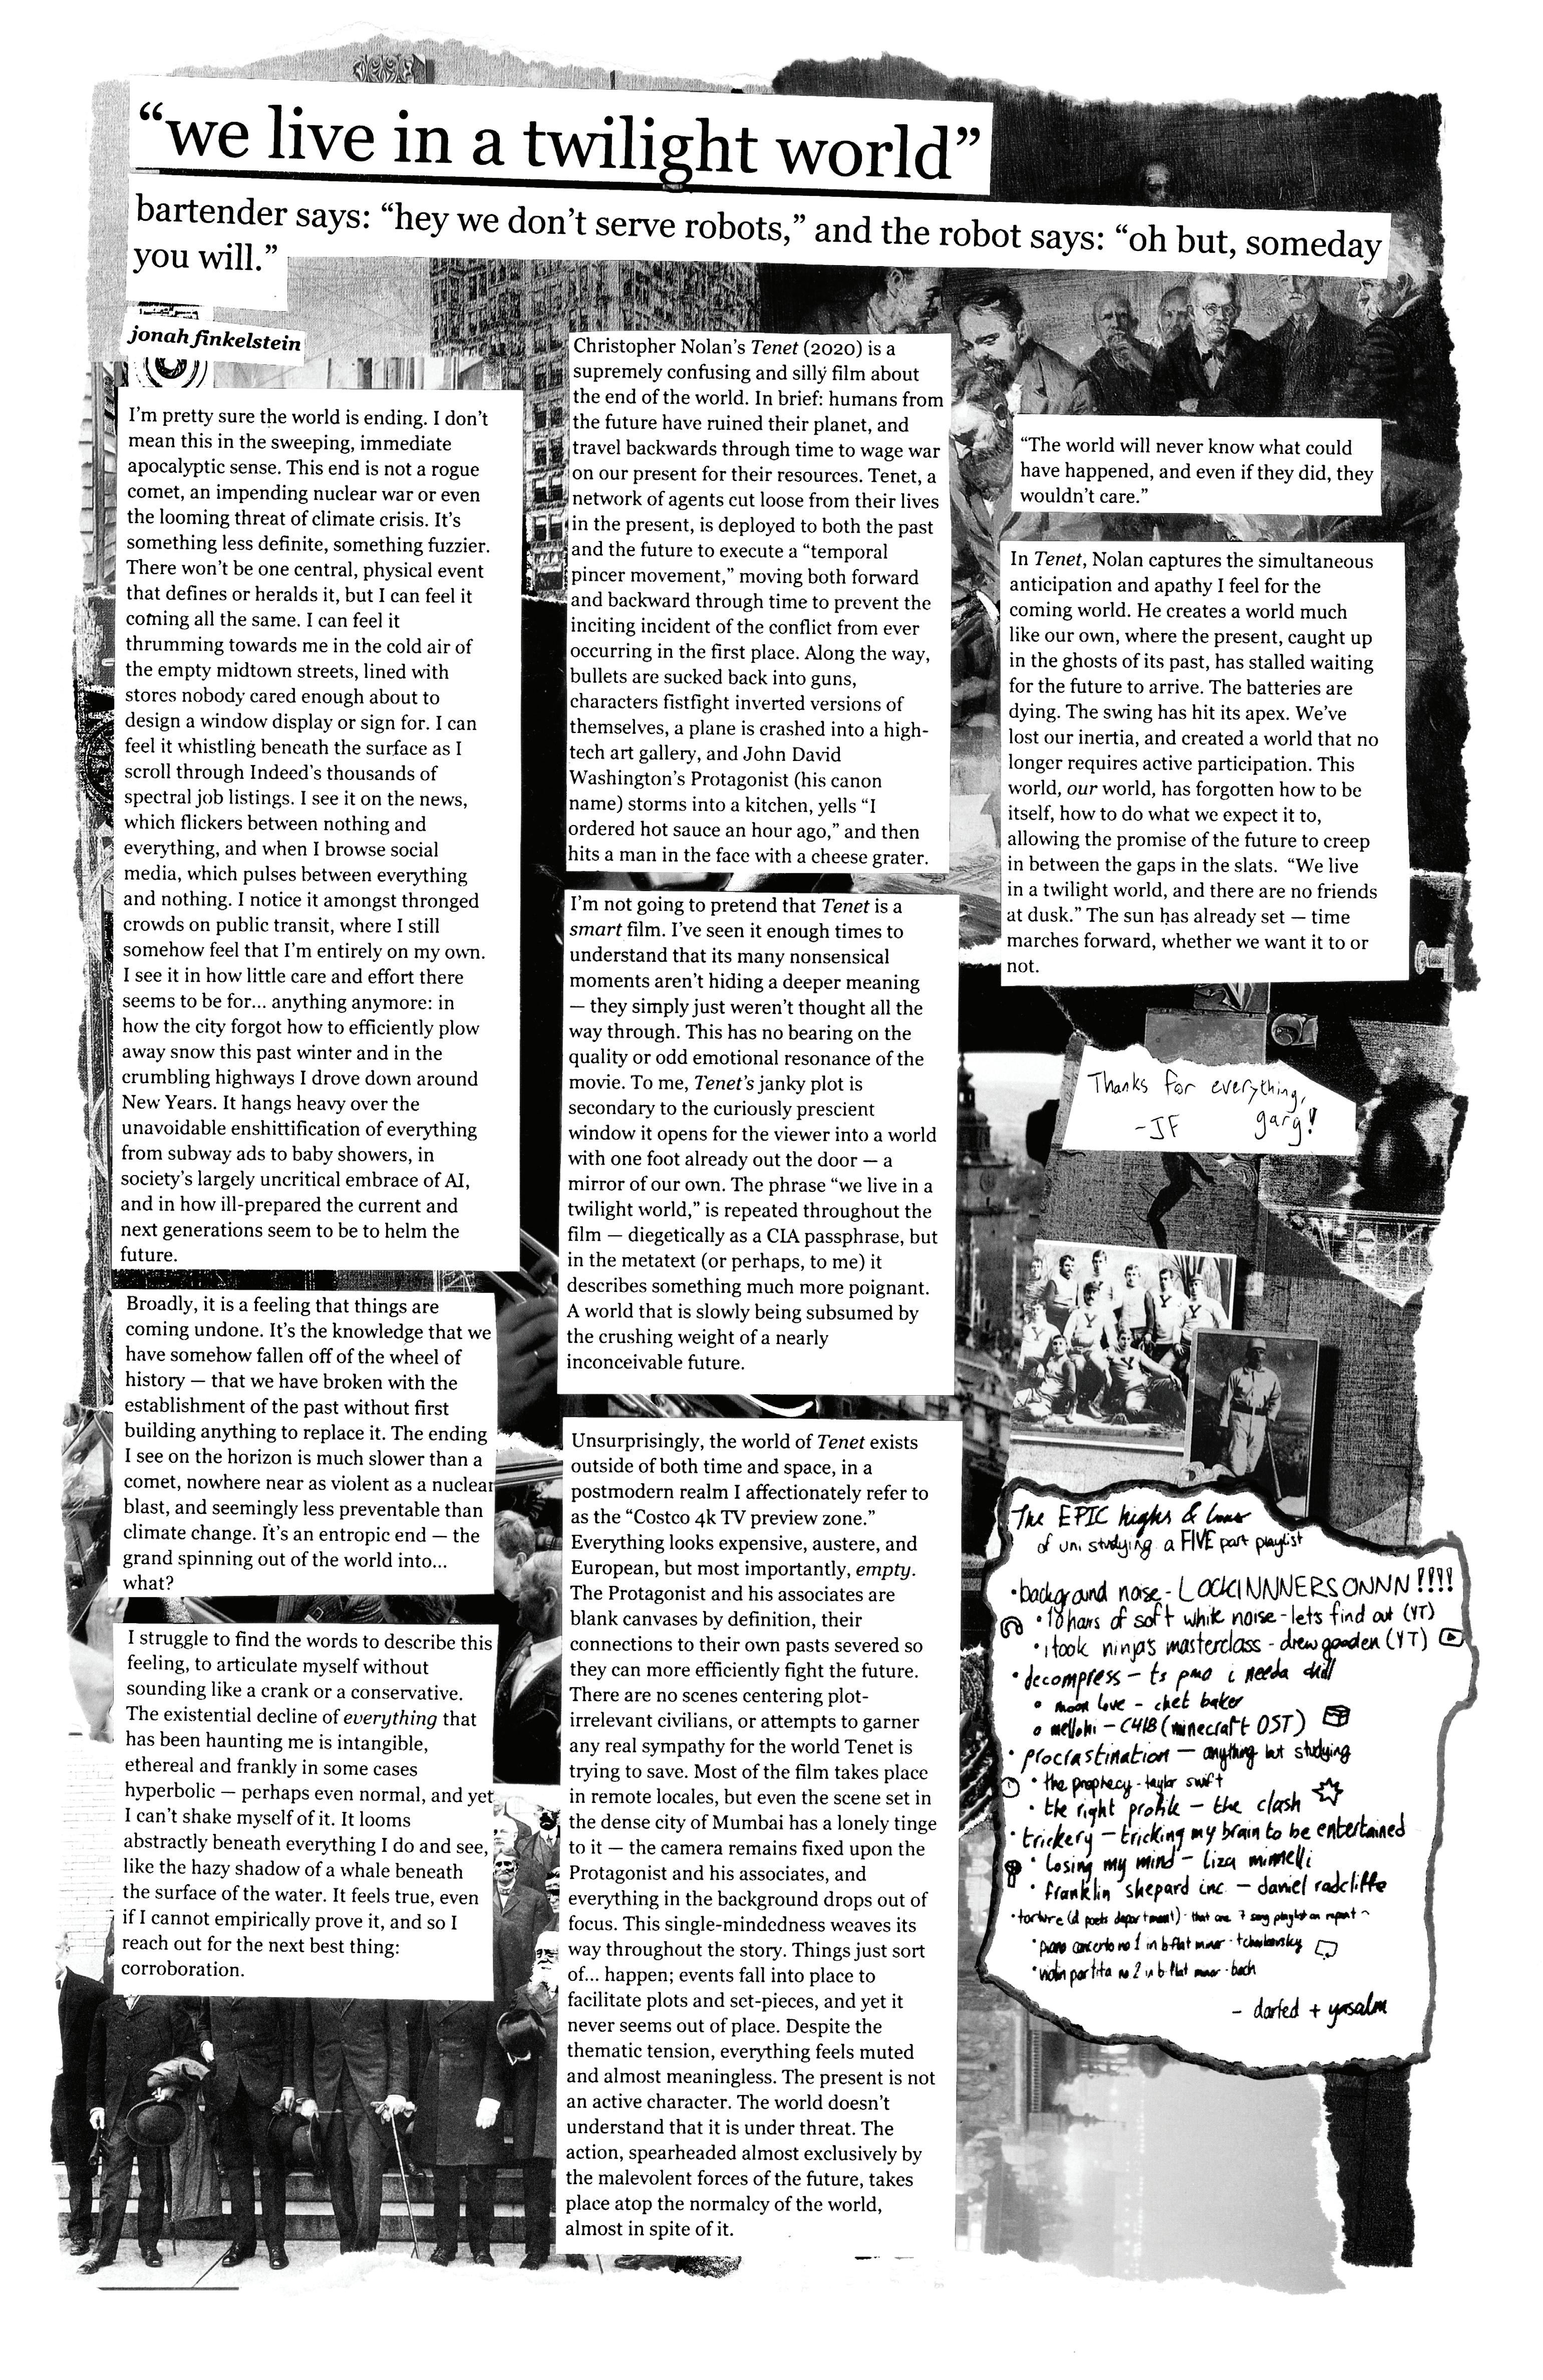 “we live in a twilight world”
bartender says: “hey we don’t serve robots,” and the robot says: “oh but, someday
you will.”
jonah finkelstein
I’m pretty sure the world is ending. I don’t
mean this in the sweeping, immediate
apocalyptic sense. This end is not a rogue
comet, an impending nuclear war or even
the looming threat of climate crisis. It’s
something less definite, something fuzzier.
There won’t be one central, physical event
that defines or heralds it, but I can feel it
coming all the same. I can feel it
thrumming towards me in the cold air of
the empty midtown streets, lined with
stores nobody cared enough about to
design a window display or sign for. I can
feel it whistling beneath the surface as I
scroll through Indeed’s thousands of
spectral job listings. I see it on the news,
which flickers between nothing and
everything, and when I browse social
media, which pulses between everything
and nothing. I notice it amongst thronged
crowds on public transit, where I still
somehow feel that I’m entirely on my own.
I see it in how little care and effort there
seems to be for... anything anymore: in
how the city forgot how to efficiently plow
away snow this past winter and in the
crumbling highways I drove down around
New Years. It hangs heavy over the
unavoidable enshittification of everything
from subway ads to baby showers, in
society’s largely uncritical embrace of AI,
and in how ill-prepared the current and
next generations seem to be to helm the
future.
Broadly, it is a feeling that things are
coming undone. It’s the knowledge that we
have somehow fallen off of the wheel of
history — that we have broken with the
establishment of the past without first
building anything to replace it. The ending
I see on the horizon is much slower than a
comet, nowhere near as violent as a nuclear
blast, and seemingly less preventable than
climate change. It’s an entropic end — the
grand spinning out of the world into...
what?
I struggle to find the words to describe this
feeling, to articulate myself without
sounding like a crank or a conservative.
The existential decline of everything that
has been haunting me is intangible,
ethereal and frankly in some cases
hyperbolic — perhaps even normal, and yet
I can’t shake myself of it. It looms
abstractly beneath everything I do and see,
like the hazy shadow of a whale beneath
the surface of the water. It feels true, even
if I cannot empirically prove it, and so I
reach out for the next best thing:
corroboration.
Christopher Nolan’s Tenet (2020) is a
supremely confusing and silly film about
the end of the world. In brief: humans from
the future have ruined their planet, and
travel backwards through time to wage war
on our present for their resources. Tenet, a
network of agents cut loose from their lives
in the present, is deployed to both the past
and the future to execute a “temporal
pincer movement,” moving both forward
and backward through time to prevent the
inciting incident of the conflict from ever
occurring in the first place. Along the way,
bullets are sucked back into guns,
characters fistfight inverted versions of
themselves, a plane is crashed into a high-
tech art gallery, and John David
Washington’s Protagonist (his canon
name) storms into a kitchen, yells “I
ordered hot sauce an hour ago,” and then
hits a man in the face with a cheese grater.
I’m not going to pretend that Tenet is a
smart film. I’ve seen it enough times to
understand that its many nonsensical
moments aren’t hiding a deeper meaning
— they simply just weren’t thought all the
way through. This has no bearing on the
quality or odd emotional resonance of the
movie. To me, Tenet’s janky plot is
secondary to the curiously prescient
window it opens for the viewer into a world
with one foot already out the door — a
mirror of our own. The phrase “we live in a
twilight world,” is repeated throughout the
film — diegetically as a CIA passphrase, but
in the metatext (or perhaps, to me) it
describes something much more poignant.
A world that is slowly being subsumed by
the crushing weight of a nearly
inconceivable future.
Unsurprisingly, the world of Tenet exists
outside of both time and space, in a
postmodern realm I affectionately refer to
as the “Costco 4k TV preview zone.”
Everything looks expensive, austere, and
European, but most importantly, empty.
The Protagonist and his associates are
blank canvases by definition, their
connections to their own pasts severed so
they can more efficiently fight the future.
There are no scenes centering plot-
irrelevant civilians, or attempts to garner
any real sympathy for the world Tenet is
trying to save. Most of the film takes place
in remote locales, but even the scene set in
the dense city of Mumbai has a lonely tinge
to it — the camera remains fixed upon the
Protagonist and his associates, and
everything in the background drops out of
focus. This single-mindedness weaves its
way throughout the story. Things just sort
of... happen; events fall into place to
facilitate plots and set-pieces, and yet it
never seems out of place. Despite the
thematic tension, everything feels muted
and almost meaningless. The present is not
an active character. The world doesn’t
understand that it is under threat. The
action, spearheaded almost exclusively by
the malevolent forces of the future, takes
place atop the normalcy of the world,
almost in spite of it.
“The world will never know what could
have happened, and even if they did, they
wouldn’t care.”
In Tenet, Nolan captures the simultaneous
anticipation and apathy I feel for the
coming world. He creates a world much
like our own, where the present, caught up
in the ghosts of its past, has stalled waiting
for the future to arrive. The batteries are
dying. The swing has hit its apex. We’ve
lost our inertia, and created a world that no
longer requires active participation. This
world, our world, has forgotten how to be
itself, how to do what we expect it to,
allowing the promise of the future to creep
in between the gaps in the slats. “We live
in a twilight world, and there are no friends
at dusk.” The sun has already set — time
marches forward, whether we want it to or
not.
Thanks for everything,
-JF garg!
The EPIC highs & lows
of uni studying a FIVE part playlist
•background noise - LOCKINNNERSONNN!!!!
•10 hours of soft white noise - lets find out (YT)
•i took ninja's masterclass - drew gooden (YT)
•decompress — ts pmo i needa chill
• moon love - chet baker
o mellohi - C418 (minecraft OST)
• procrastination — anything but studying
• the prophecy - taylor swift
• the right profile — the clash
• trickery — tricking my brain to be entertained
• losing my mind - liza minnelli
• franklin shepard inc. — daniel radcliffe
•torture (d poets department) - that one 7 song playlist on repeat ~
•piano concerto no 1 in b flat minor - tchaikovsky
•violin partita no. 2 in b flat minor - bach
- darfed + yasalm
Y
Y
Y
Y